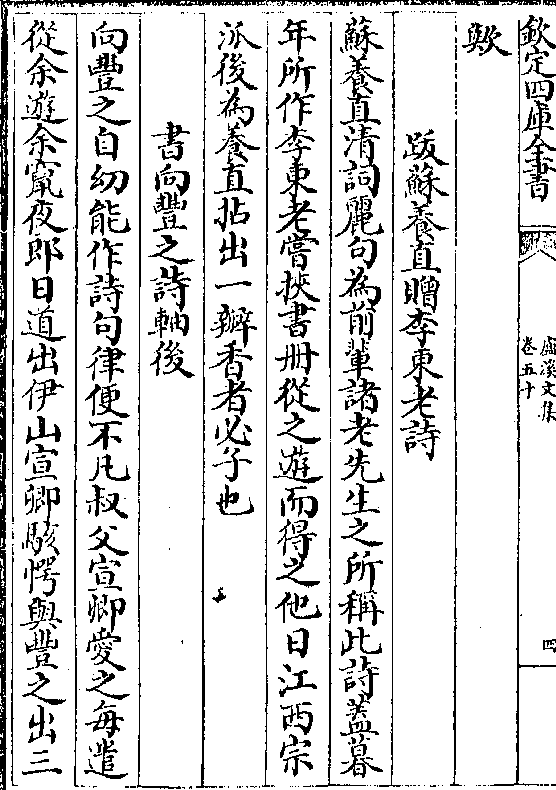 欽定四庫全書
盧溪文集
卷五十
四
歟
跋蘇養直贈李東老詩
蘇養直清詞麗句為前輩諸老先生之所稱此詩蓋暮
年所作李東老嘗挾書册從之遊而得之他日江西宗
派後為養直拈出一瓣香者必子也
書向豐之詩軸後
向豐之自幼能作詩句律便不凡叔父宣卿愛之每遣
從余遊余竄夜郎日道出伊山宣卿駭愕與豐之出三